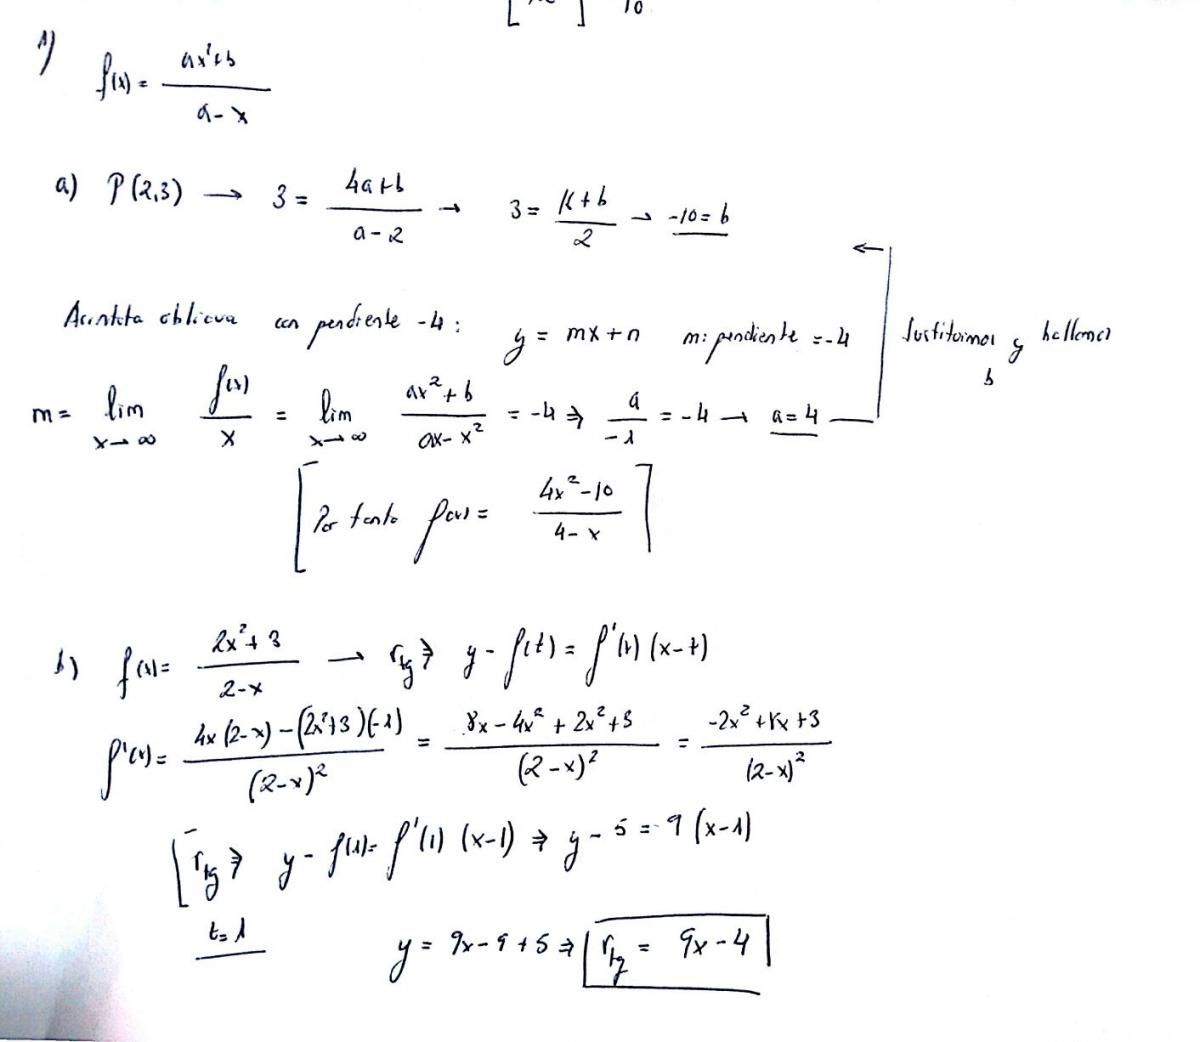 10
1) f(x) = (ax²+b)/(a-x)
a) P(2,3) → 3 = (4a+b)/(a-2) → 3 = (16+b)/2 → -10 = b
Asíntota oblicua con pendiente -4: y = mx+n m: pendiente = -4 Sustituimos y hallamos b
m = lim x→∞ f(x)/x = lim x→∞ (ax²+b)/(ax-x²) = -4 ⇒ a/-1 = -4 → a=4
[Por tanto f(x) = (4x²-10)/(4-x)]
b) f(x) = (2x²+3)/(2-x) → rtg ⇒ y - f(t) = f'(t) (x-t)
f'(x) = (4x(2-x) - (2x²+3)(-1))/(2-x)² = (8x-4x²+2x²+3)/(2-x)² = (-2x²+8x+3)/(2-x)²
[rtg ⇒ y - f(1) = f'(1) (x-1) ⇒ y - 5 = 9(x-1)
t=1
y = 9x-9+5 ⇒ rtg = 9x-4